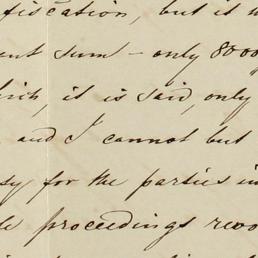 fiscation, but it
ent sum - only 8000
hich, it is said, only
and I cannot but
sy for the parties in
le proceedings